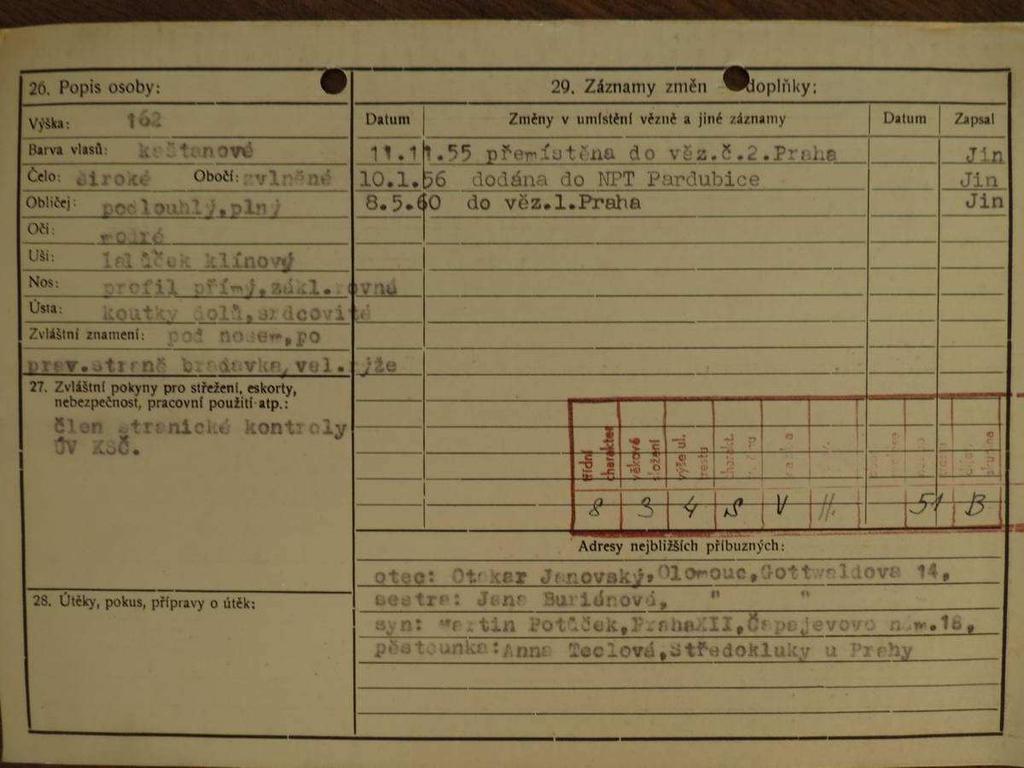 26. Popis osoby:
Výška: 162
Barva vlasů: kaštanové
Čelo: široké Obočí: zvlněné
Obličej: podlouhlý,plný
Oči: modré
Uši: lalůček klínový
Nos: profil přímý,zákl.rovná
Ústa: koutky dolů,srdcovité
Zvláštní znamení: pod nosem,po
prav.straně bradavka,vel.rýže
27. Zvláštní pokyny pro střežení, eskorty,
nebezpečnost, pracovní použití atp.:
člen stranické kontroly
ÚV KSČ.
28. Útěky, pokus, přípravy o útěk:
29. Záznamy změn doplňky:
Datum Změny v umístění vězně a jiné záznamy Datum Zapsal
11.11.55 přemístěna do věz.č.2.Praha Jin
10.1.56 dodána do NPT Pardubice Jin
8.5.60 do věz.1.Praha Jin
třídní charakter věkové složení výše ul. trestu charakt.
8 3 4 S V II. 51 B
Adresy nejbližších příbuzných:
otec: Otakar Janovský,Olomouc,Gottwaldova 14,
sestra: Jana Buriánová, " "
syn: Martin Potůček,PrahaXII,Čapajevovo nám.18,
pěstounka:Anna Teclová,Středokluky u Prahy